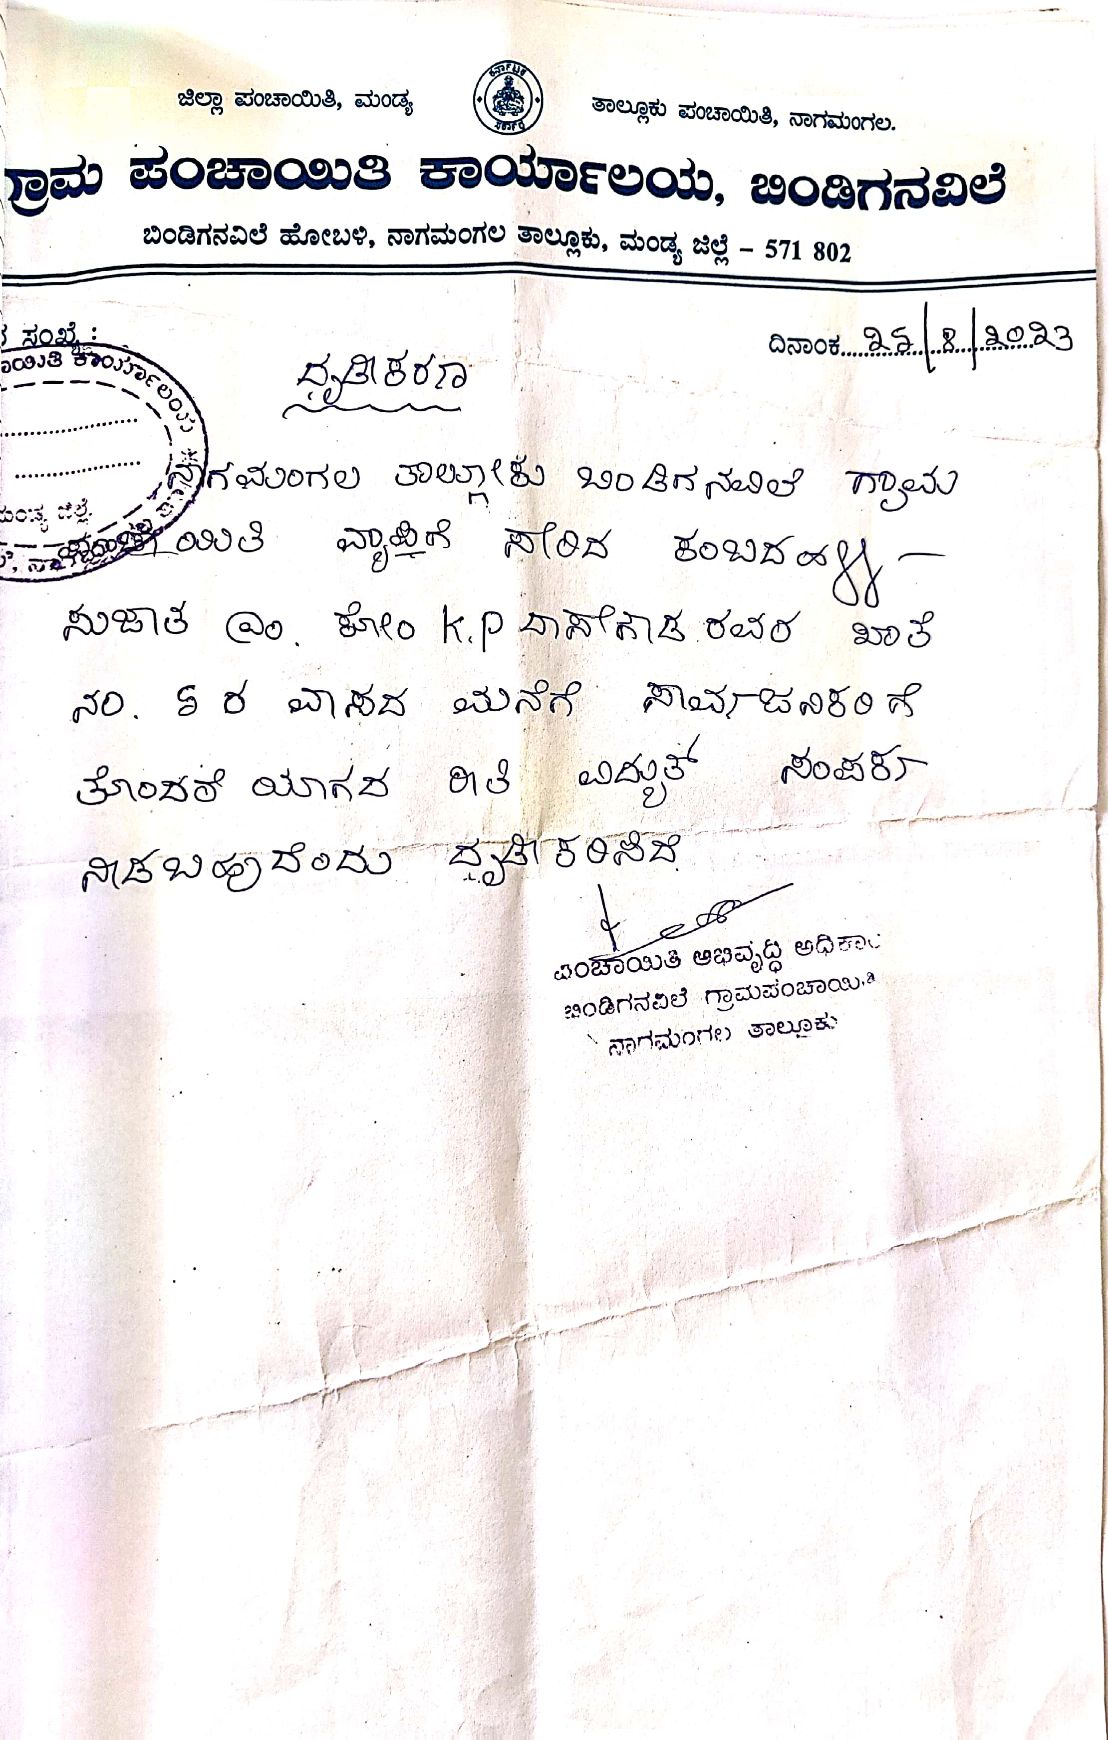 ಜಿಲ್ಲಾ ಪಂಚಾಯಿತಿ, ಮಂಡ್ಯ
ಕರ್ನಾಟಕ ಸರ್ಕಾರ
ತಾಲ್ಲೂಕು ಪಂಚಾಯಿತಿ, ನಾಗಮಂಗಲ.
ಗ್ರಾಮ ಪಂಚಾಯಿತಿ ಕಾರ್ಯಾಲಯ, ಬಿಂಡಿಗನವಿಲೆ
ಬಿಂಡಿಗನವಿಲೆ ಹೋಬಳಿ, ನಾಗಮಂಗಲ ತಾಲ್ಲೂಕು, ಮಂಡ್ಯ ಜಿಲ್ಲೆ – 571 802
ಸಂಖ್ಯೆ :
ದಿನಾಂಕ
/8/2023
ಕಾರ್ಯಾಲಯ
ಜಿಲ್ಲೆ.
ದೃಢೀಕರಣ
ನಾಗಮಂಗಲ ತಾಲ್ಲೂಕು ಬಿಂಡಿಗನವಿಲೆ ಗ್ರಾಮ
ಪಂಚಾಯಿತಿ ವ್ಯಾಪ್ತಿಗೆ ಸೇರಿದ ಕಂಬದಹಳ್ಳಿ –
ಸುಜಾತ ಎಂ. ಕೋಂ K.P ರವರ ಖಾತೆ
ನಂ. ರ ವಾಸದ ಮನೆಗೆ ಸಾರ್ವಜನಿಕರಿಗೆ
ತೊಂದರೆಯಾಗದ ರೀತಿ ವಿದ್ಯುತ್ ಸಂಪರ್ಕ
ನೀಡಬಹುದೆಂದು ದೃಢೀಕರಿಸಿದೆ
ಪಂಚಾಯಿತಿ ಅಭಿವೃದ್ಧಿ ಅಧಿಕಾರಿ
ಬಿಂಡಿಗನವಿಲೆ ಗ್ರಾಮಪಂಚಾಯಿತಿ
ನಾಗಮಂಗಲ ತಾಲ್ಲೂಕು